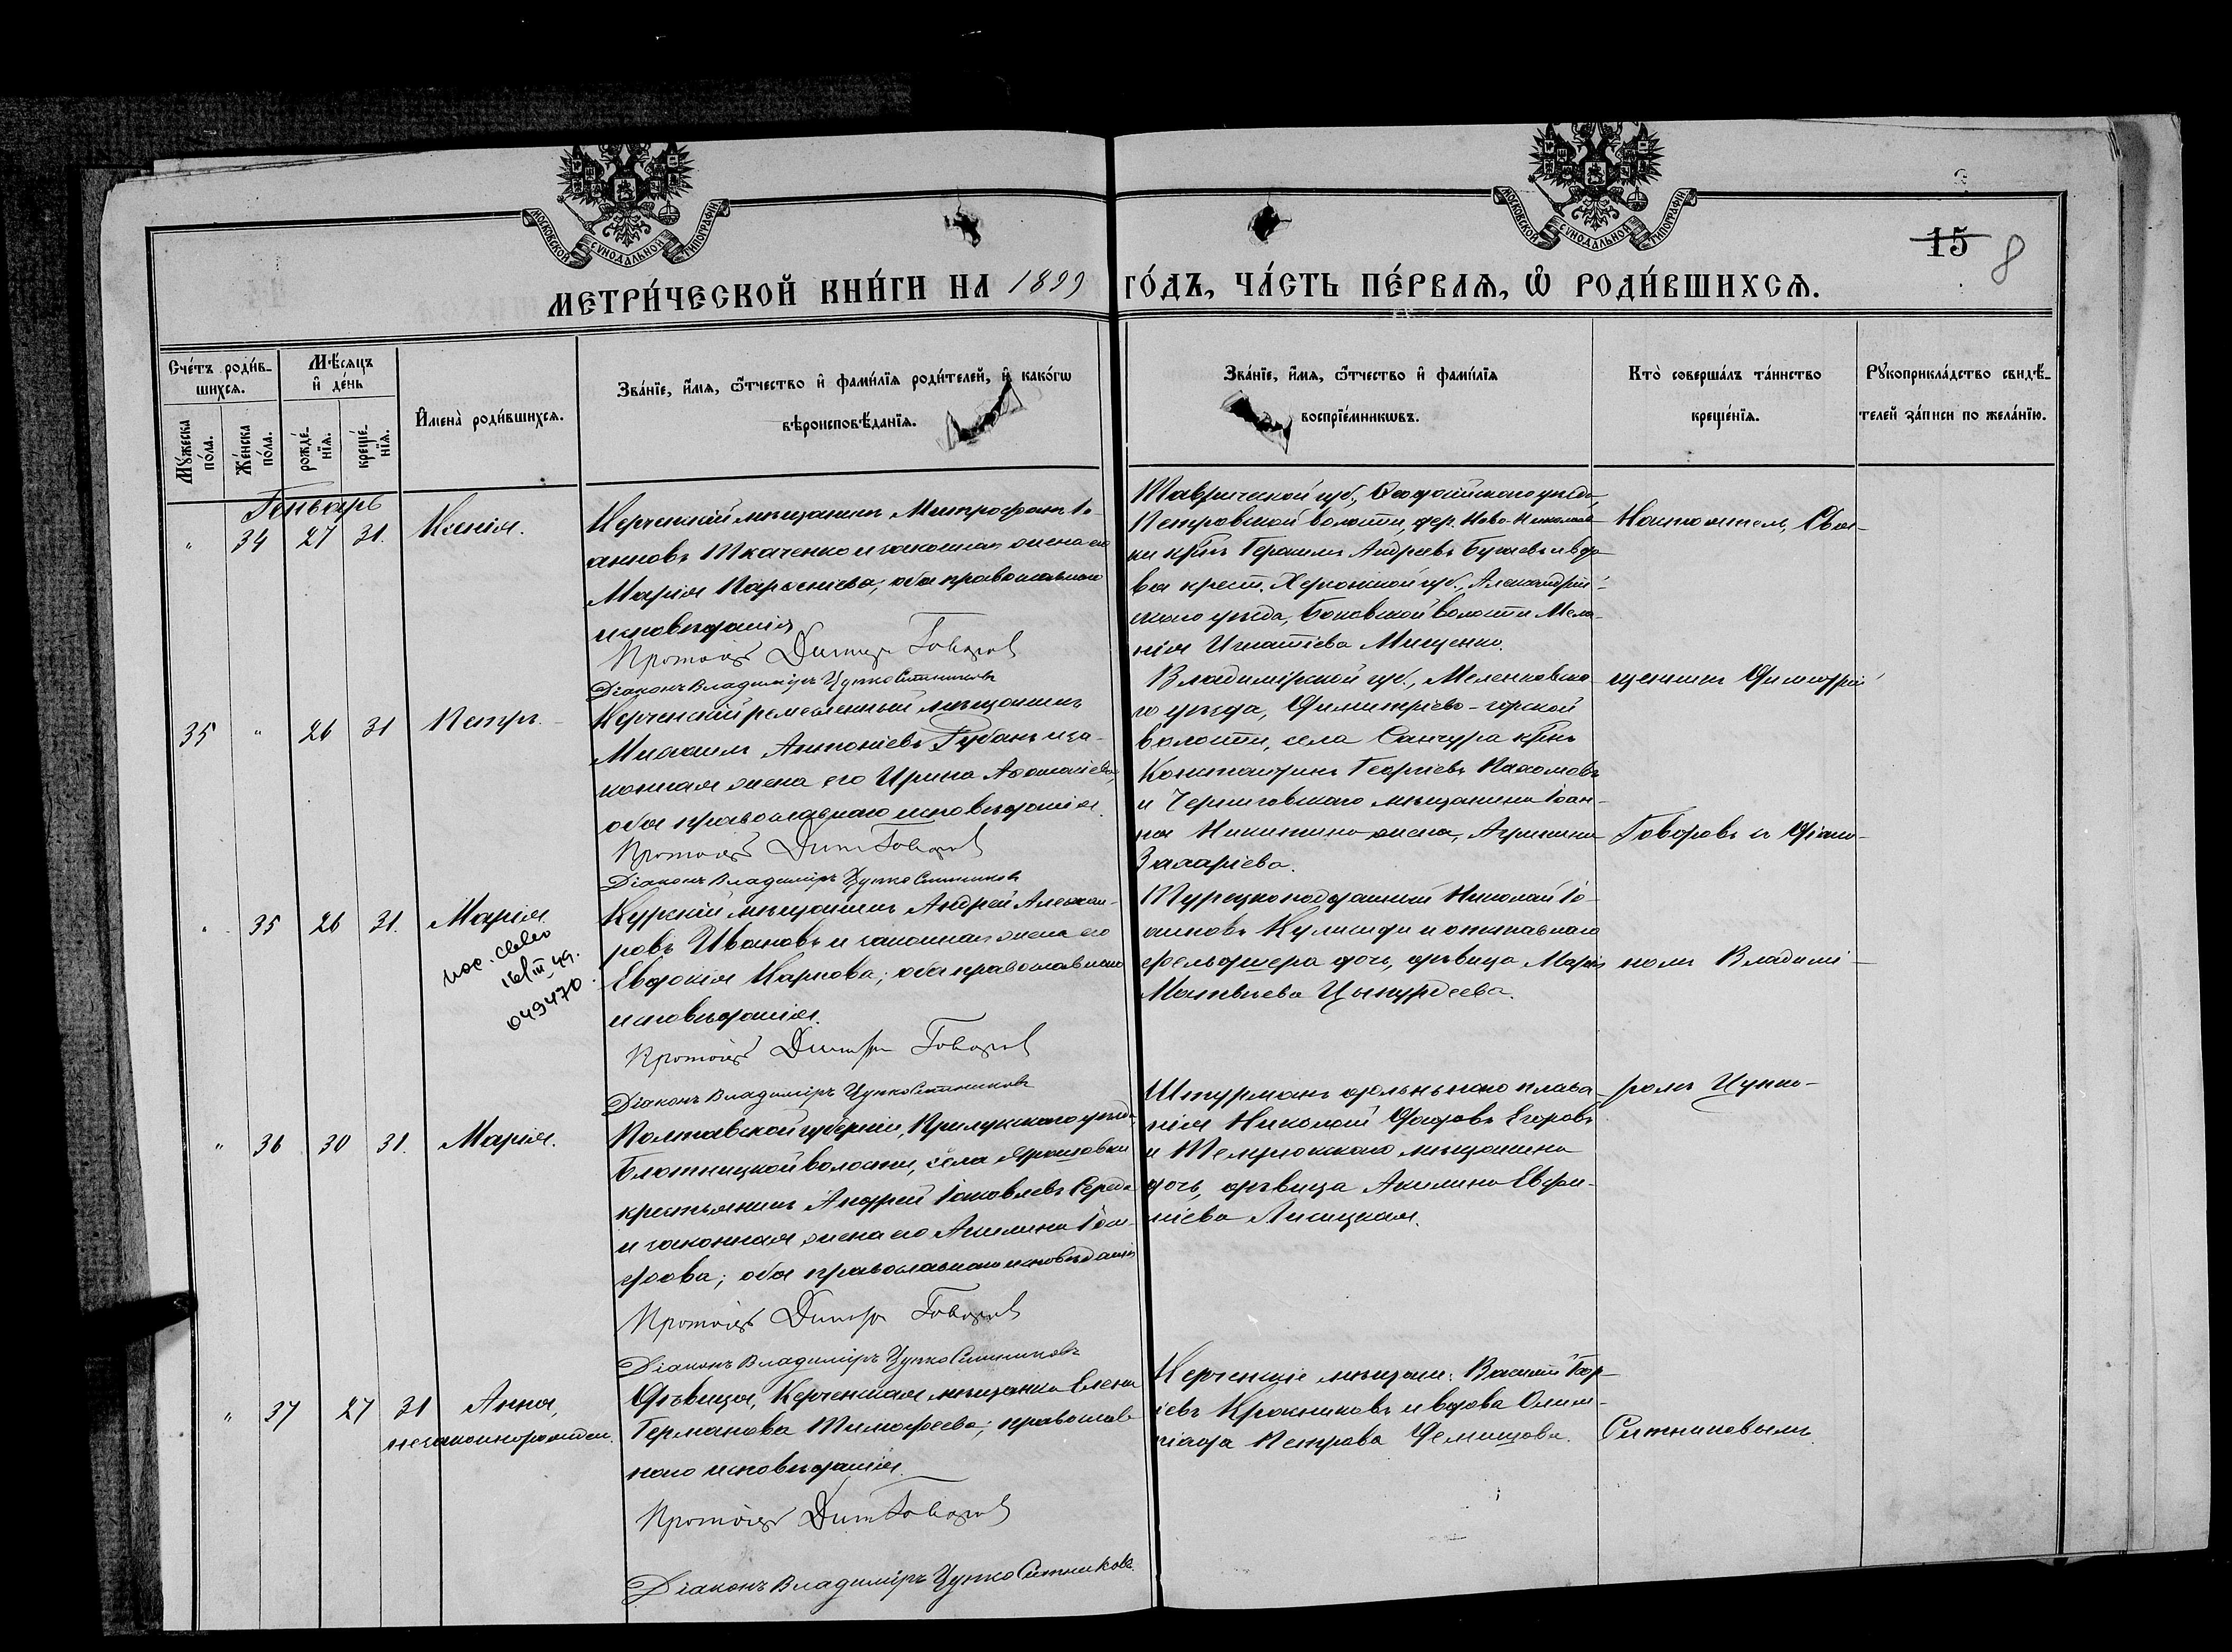 МОСКОВСКОЙ СѴНОДАЛЬНОЙ ТИПОГРАФІИ
МОСКОВСКОЙ СѴНОДАЛЬНОЙ ТИПОГРАФІИ
15
8
МЕТРИ́ЧЕСКОЙ КНИ́ГИ НА 1899 ГО́ДЪ, ЧА́СТЬ ПЕ́РВАѦ, Ѡ҆ РОДИ́ВШИХСѦ.
Сче́тъ роди́в-
шихсѧ.
Мѣ́сѧцъ
и҆ де́нь
Мꙋ́жеска
по́ла.
Же́нска
по́ла.
рожде́-
нїѧ.
креще́-
нїѧ.
И҆мена̀ роди́вшихсѧ.
Зва́нїе, и҆́мѧ, ѻ҆́тчество и҆ фами́лїѧ роди́телей, и҆ како́гѡ
вѣроисповѣ́данїѧ.
Зва́нїе, и҆́мѧ, ѻ҆́тчество и҆ фами́лїѧ
воспрїе́мникѡвъ.
Кто̀ соверша́лъ та́инство
креще́нїѧ.
Рꙋкоприкла́дство свидѣ́-
телей за́писи по жела́нїю.
Генварь
" 34 27 31. Ксенія.
Керченскій мѣщанинъ Митрофанъ Іо-
анновъ Ткаченко и законная жена его
Марія Парѳеніева; оба православнаго
исповѣданія
Протоіер Димитр Говоров
Діаконъ Владиміръ Цупко Ситниковъ
Таврической губ., Ѳеодосійскаго уѣзда,
Петровской волости, дер. Ново-Николаев-
ки крнъ Герасимъ Андреевъ Бугаевъ и вдо-
ва крест. Херсонской губ., Александрій-
скаго уѣзда, Боковской волости Мела-
нія Игнатіева Мищенко.
Настоятель, Свя-
35 " 26 31 Петръ.
Керченскій ремесленный мѣщанинъ
Михаилъ Антоніевъ Губань и за-
конная жена его Ирина Аѳанасіева;
оба православнаго исповѣданія.
Протоіер Дим Говоров
Діаконъ Владиміръ Цупко Ситниковъ
Владимірской губ., Меленковска-
го уѣзда, Димитріево-горской
волости, села Санчура крнъ
Константинъ Георгіевъ Пахомовъ
и Черниговскаго мѣщанина Іоан-
на Никитина жена, Агрипина
Захаріева.
щенникъ Димитрій
Говоровъ и Діако-
" 35 26 31. Марія
049470
Курскій мѣщанинъ Андрей Алексан-
ровъ Ивановъ и законная жена его
Евдокія Карпова; оба православнаго
исповѣданія.
Протоіер Димитр Говоров
Діаконъ Владиміръ Цупко Ситниковъ
Турецкоподданный Николай Іо-
анновъ и
фельдшера дочь, дѣвица Марія
Матвѣева
номъ Владимі-
" 36 30 31. Марія.
Полтавской губерніи, Прилукскаго уѣзда,
волости, села Ярошовки
крестьянинъ Андрей Іаковлевъ Середа
и законная жена его Акилина Іси-
дорова; оба православнаго исповѣданія
Протоіер Димитр Говоров
Діаконъ Владиміръ Цупко Ситниковъ
Штурманъ дальнѣйшаго плава-
нія Николай Ѳедоровъ Егоровъ
и Темрюкскаго мѣщанина
дочь, дѣвица Акилина Евфи-
міева Лисицкая.
ромъ Цупко-
" 37 27 31 Анна,
незаконнорожден.
Дѣвица, Керченская мѣщанка Елена
Германова Тимофеева; православ-
наго исповѣданія.
Протоіер Дим Говоров
Діаконъ Владиміръ Цупко Ситниковъ.
Керченскіе мѣщане: Василій Геор-
іевъ Крапниковъ и вдова Олим-
піада Петрова Демидова.
Ситниковымъ.